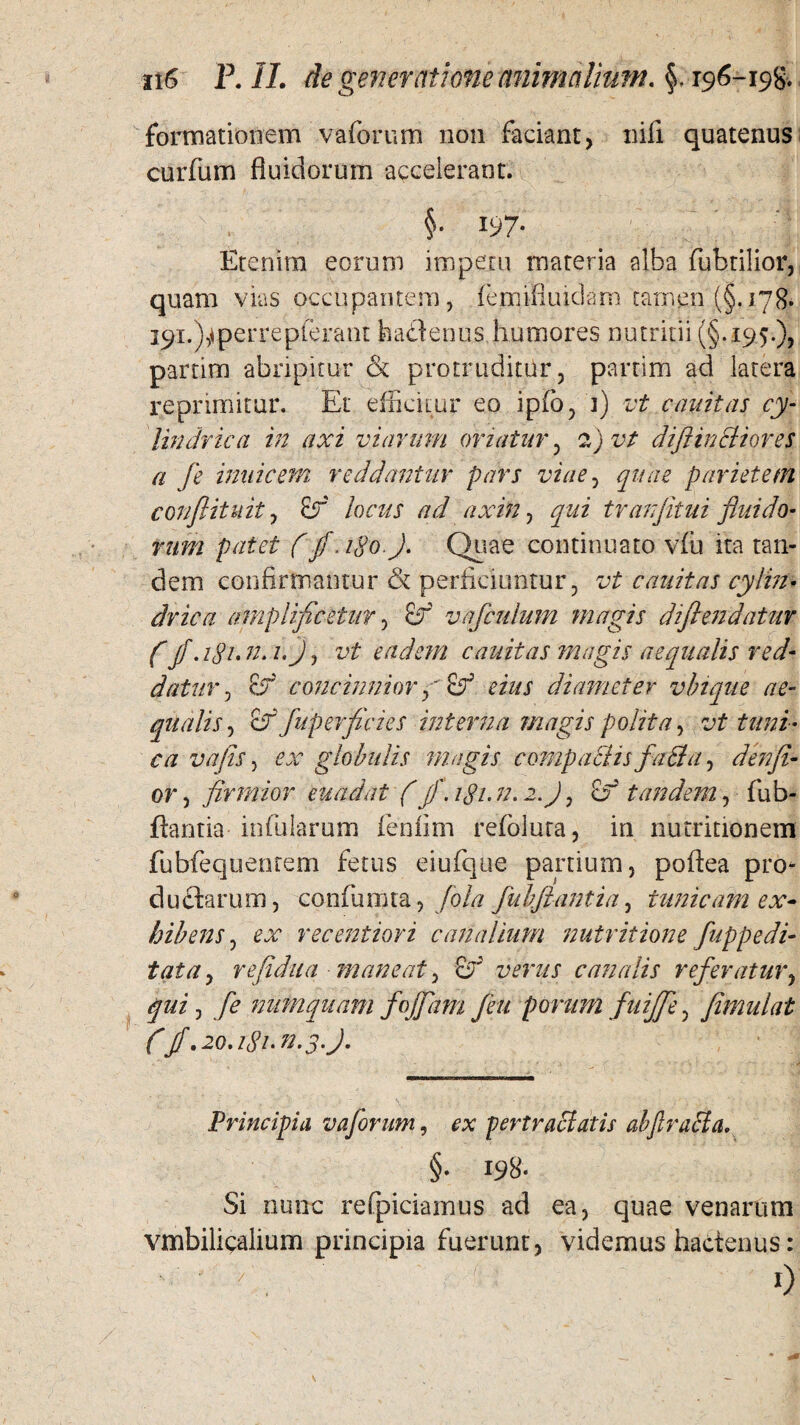 116 P. II. de generatione animalium. §. 196-198.
formationem vaſorum non faciant, niſi quatenus
curſum fluidorum accelerant.
§. 197.
Etenim eorum impetu materia alba ſubtilior,
quam vias occupantem, ſemifluidam tamen (§. 178.
191.), perrepſerant hactenus humores nutritii (§. 195.),
partim abripitur & protruditur, partim ad latera
reprimitur. Et efficitur eo ipſo, 1) vt cauitas cy-
lindrica in axi viarum oriatur, 2) vt diſtinctiores
a ſe inuicem reddantur pars viae, quae parietem
conſtituit, & locus ad axin, qui tranſitui fluido-
rum patet (ſſ. 180.). Quae continuato vſu ita tan-
dem confirmantur & perficiuntur, vt cauitas cylin-
drica amplificetur, & vaſculum magis diſtendatur
(ſſ. 181. n. 1.), vt eadem cauitas magis aequalis red-
datur, & concinnior, & eius diameter vbique ae-
qualis, & ſuperficies interna magis polita, vt tuni-
ca vaſis, ex globulis magis compactis facta, denſi-
or, firmior euadat (ſſ. 181. n. 2.), & tandem, ſub-
ſtantia inſularum ſenſim reſoluta, in nutritionem
ſubſequentem fetus eiuſque partium, poſtea pro-
ductarum, conſumta, ſola ſubſtantia, tunicam ex-
hibens, ex recentiori canalium nutritione ſuppedi-
tata, reſidua maneat, & verus canalis referatur,
qui, ſe numquam foſſam ſeu porum fuiſſe, ſimulat
(ſſ. 20. 181. n. 3.).
Principia vaſorum, ex pertractatis abſtracta.
§. 198.
Si nunc reſpiciamus ad ea, quae venarum
vmbilicalium principia fuerunt, videmus hactenus:
1)